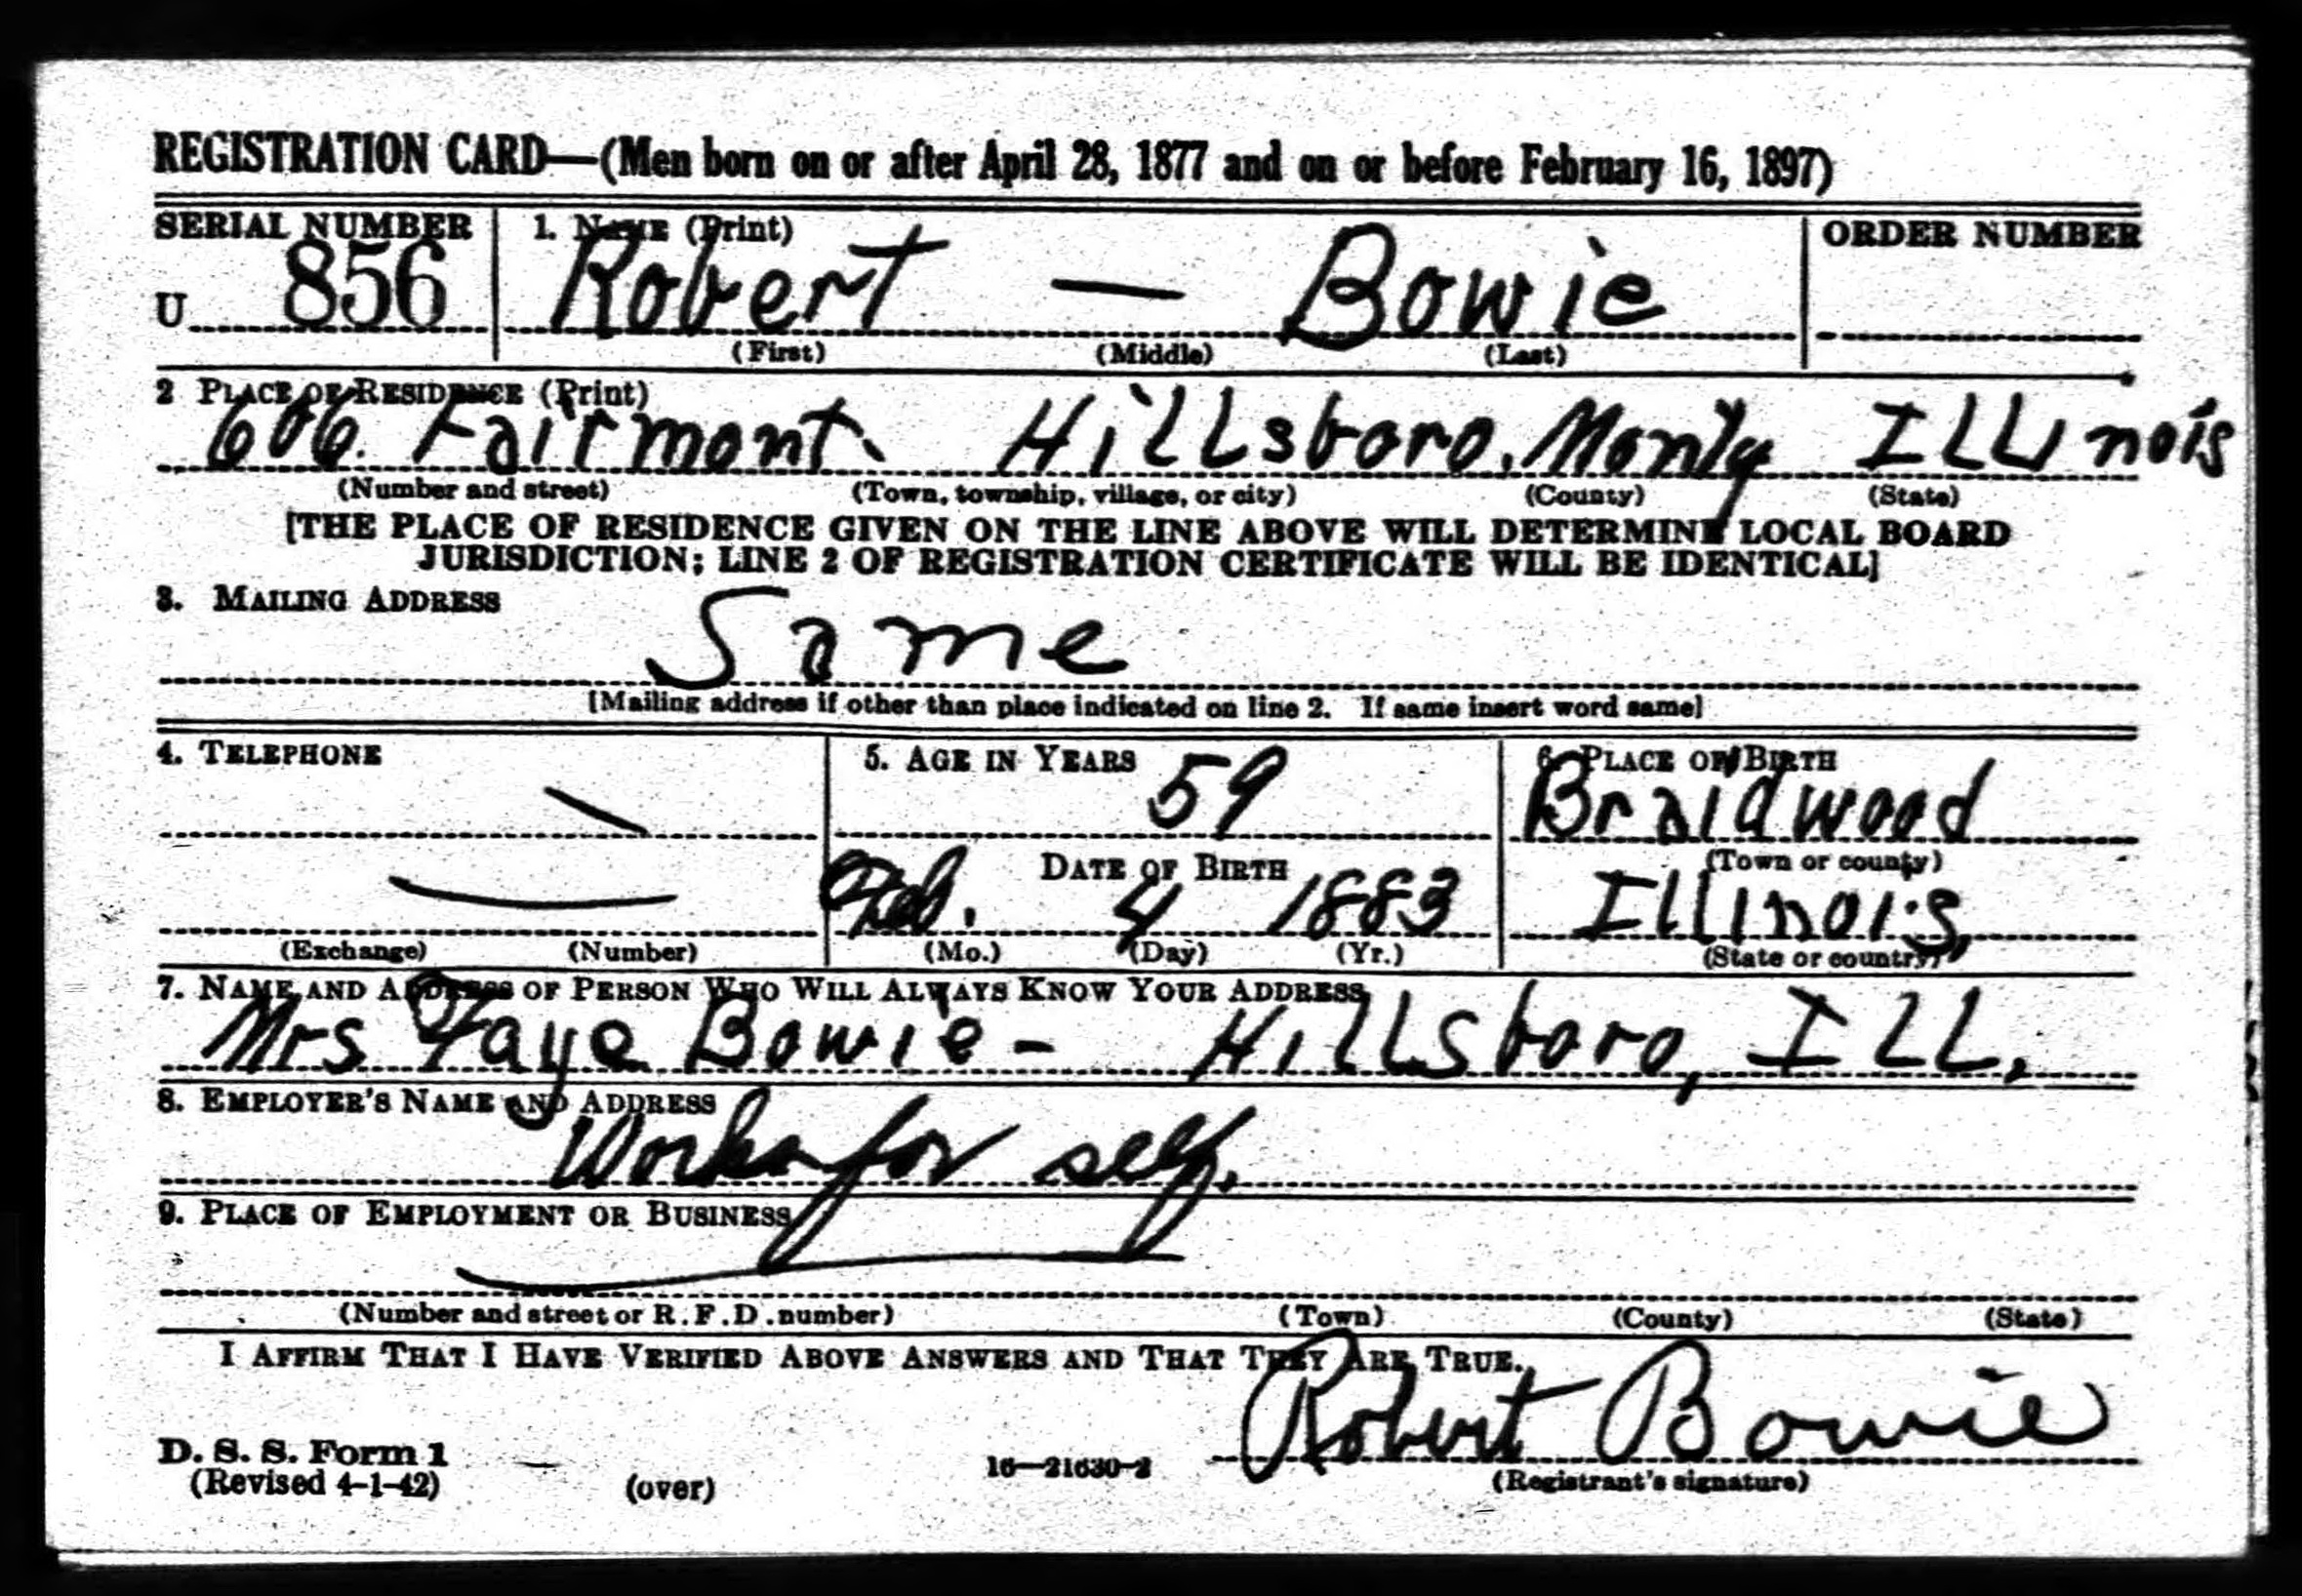 REGISTRATION CARD—(Men born on or after April 28, 1877 and on or before February 16, 1897)
SERIAL NUMBER 1. NAME (Print) ORDER NUMBER
U 856 Robert — Bowie
(First) (Middle) (Last)
2 PLACE OF RESIDENCE (Print)
606 Fairmont. Hillsboro, Montg Illinois
(Number and street) (Town, township, village, or city) (County) (State)
[THE PLACE OF RESIDENCE GIVEN ON THE LINE ABOVE WILL DETERMINE LOCAL BOARD
JURISDICTION; LINE 2 OF REGISTRATION CERTIFICATE WILL BE IDENTICAL]
3. MAILING ADDRESS
Same
[Mailing address if other than place indicated on line 2. If same insert word same]
4. TELEPHONE 5. AGE IN YEARS 6. PLACE OF BIRTH
59 Braidwood
DATE OF BIRTH (Town or county)
Feb. 4 1883 Illinois
(Exchange) (Number) (Mo.) (Day) (Yr.) (State or country)
7. NAME AND ADDRESS OF PERSON WHO WILL ALWAYS KNOW YOUR ADDRESS
Mrs Faye Bowie - Hillsboro, ILL.
8. EMPLOYER'S NAME AND ADDRESS
Works for self.
9. PLACE OF EMPLOYMENT OR BUSINESS
(Number and street or R. F. D. number) (Town) (County) (State)
I AFFIRM THAT I HAVE VERIFIED ABOVE ANSWERS AND THAT THEY ARE TRUE.
Robert Bowie
D. S. S. Form 1
(Revised 4-1-42) (over) 16—21630-2 (Registrant's signature)